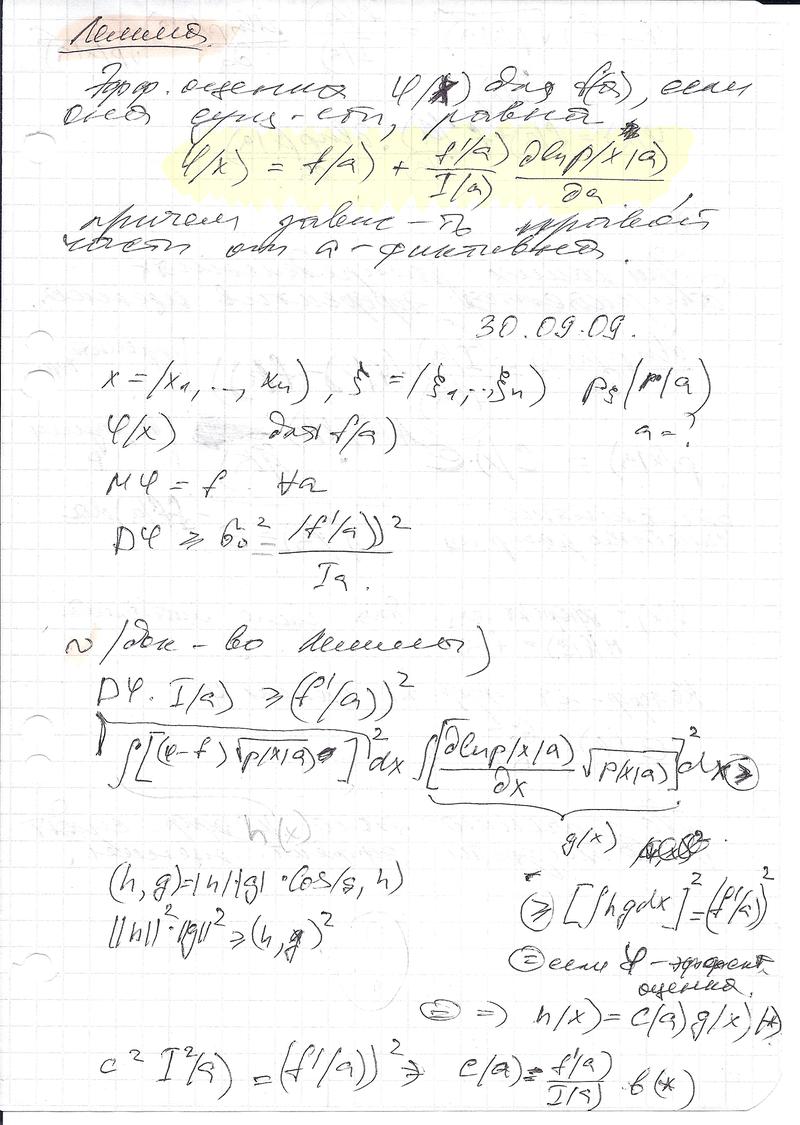 Лемма.
Эфф. оценка φ(x) для f(a), если
она сущ-ет, равна
φ(x) = f(a) + f'(a)/I(a) ∂lnp(x|a)/∂a ,
причем завис-ть правой
части от a - фиктивная.
30.09.09.
x = (x1, .., xn), ξ = (ξ1, .., ξn) pξ( |a)
φ(x) для f(a) a = ?
Mφ = f ∀a
Dφ ≥ σ0² = (f'(a))² / Ia.
~ (док-во леммы)
Dφ · I(a) ≥ (f'(a))²
∫[(φ-f) √p(x|a)]² dx ∫[∂lnp(x|a)/∂x √p(x|a)]² dx ≥
g(x)
(h, g) = |h|·|g| · cos(g, h)
≥ [∫hgdx]² = (f'(a))²
||h||² · ||g||² ≥ (h, g)²
= если φ - эффект.
оценка.
= ⇒ h(x) = c(a) g(x) (*)
c² I²(a) = (f'(a))² ⇒ c(a) = f'(a)/I(a) в (*)